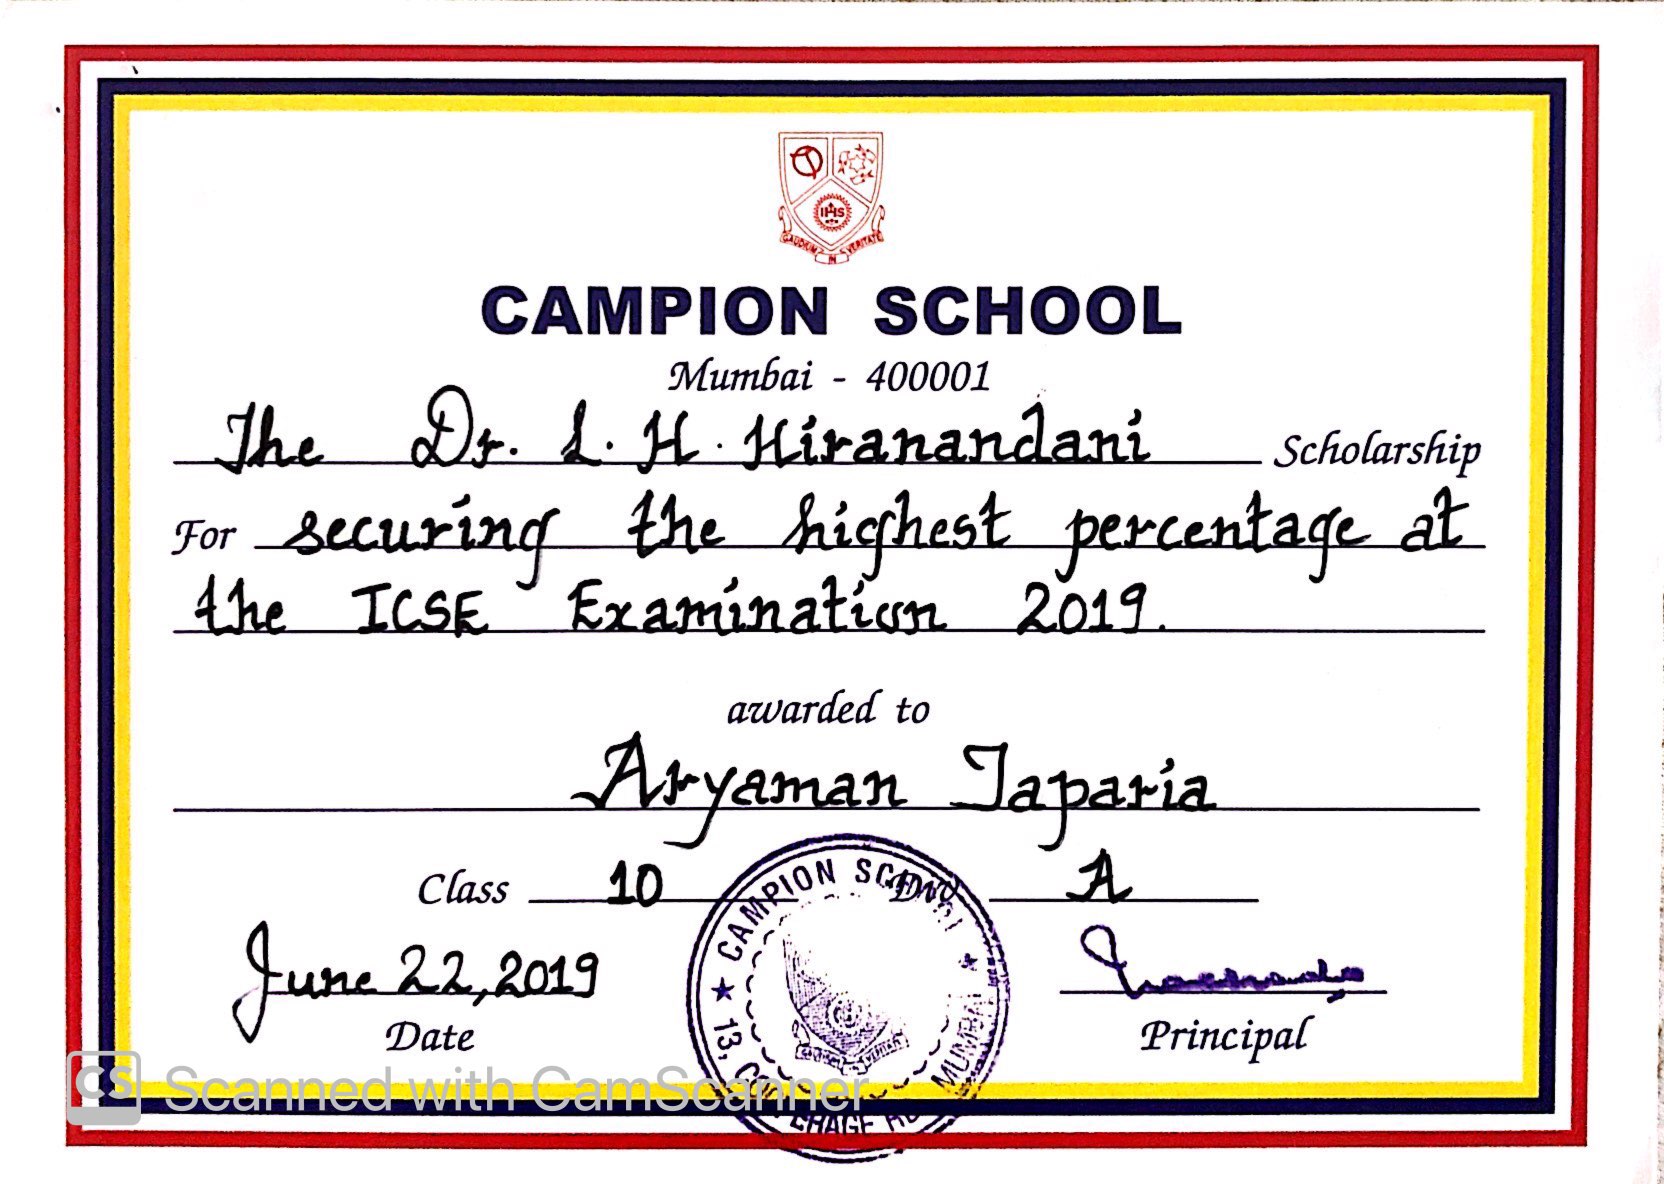 IHS
GAUDIUM IN VERITATE
CAMPION SCHOOL
Mumbai - 400001
The Dr. L. H. Hiranandani Scholarship
For securing the highest percentage at
the ICSE Examination 2019.
awarded to
Aryaman Taparia
Class 10 Div A
June 22, 2019
Date
Principal
CAMPION SCHOOL
13, MUMBAI
CS Scanned with CamScanner